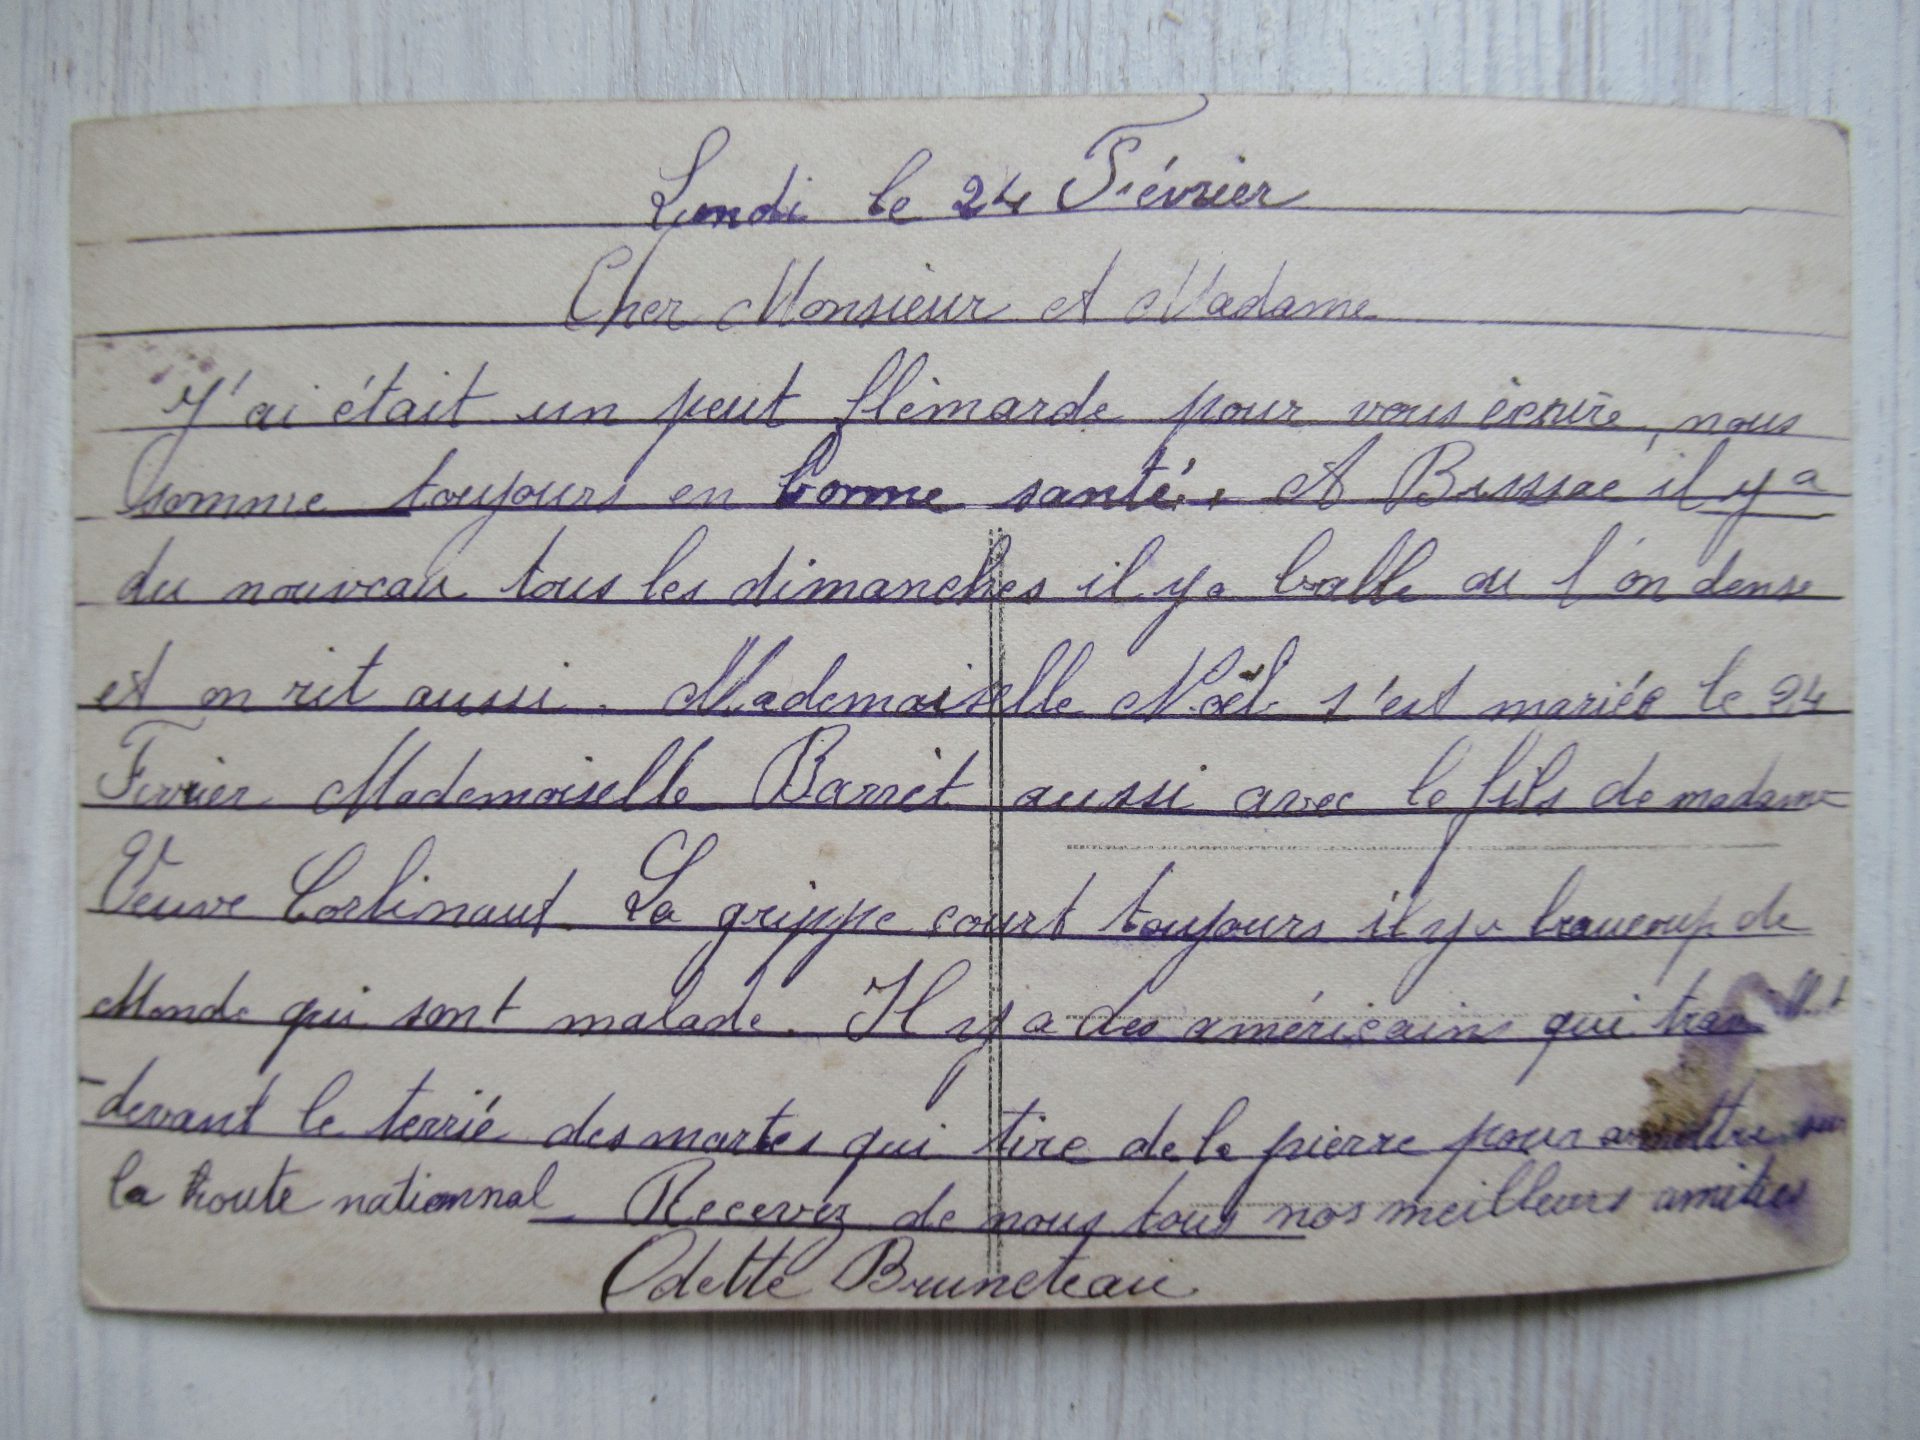 Lundi le 24 Février
Cher Monsieur et Madame
J'ai était un peut flémarde pour vous écrire, nous
somme toujours en bonne santé. A Bussac il y a
du nouveau tous les dimanches il y a balle ou l'on dense
et on rit aussi. Mademoiselle Noël s'est mariée le 24
Fevrier Mademoiselle Barret aussi avec le fils de madame
Veuve Corlinaut. La grippe court toujours il y a beaucoup de
Monde qui sont malade. Il y a des américains qui
devant le terrié des martes qui tire de la pierre pour
la route nationnal. Recevez de nous tous nos meilleurs amities
Odette Bruneteau